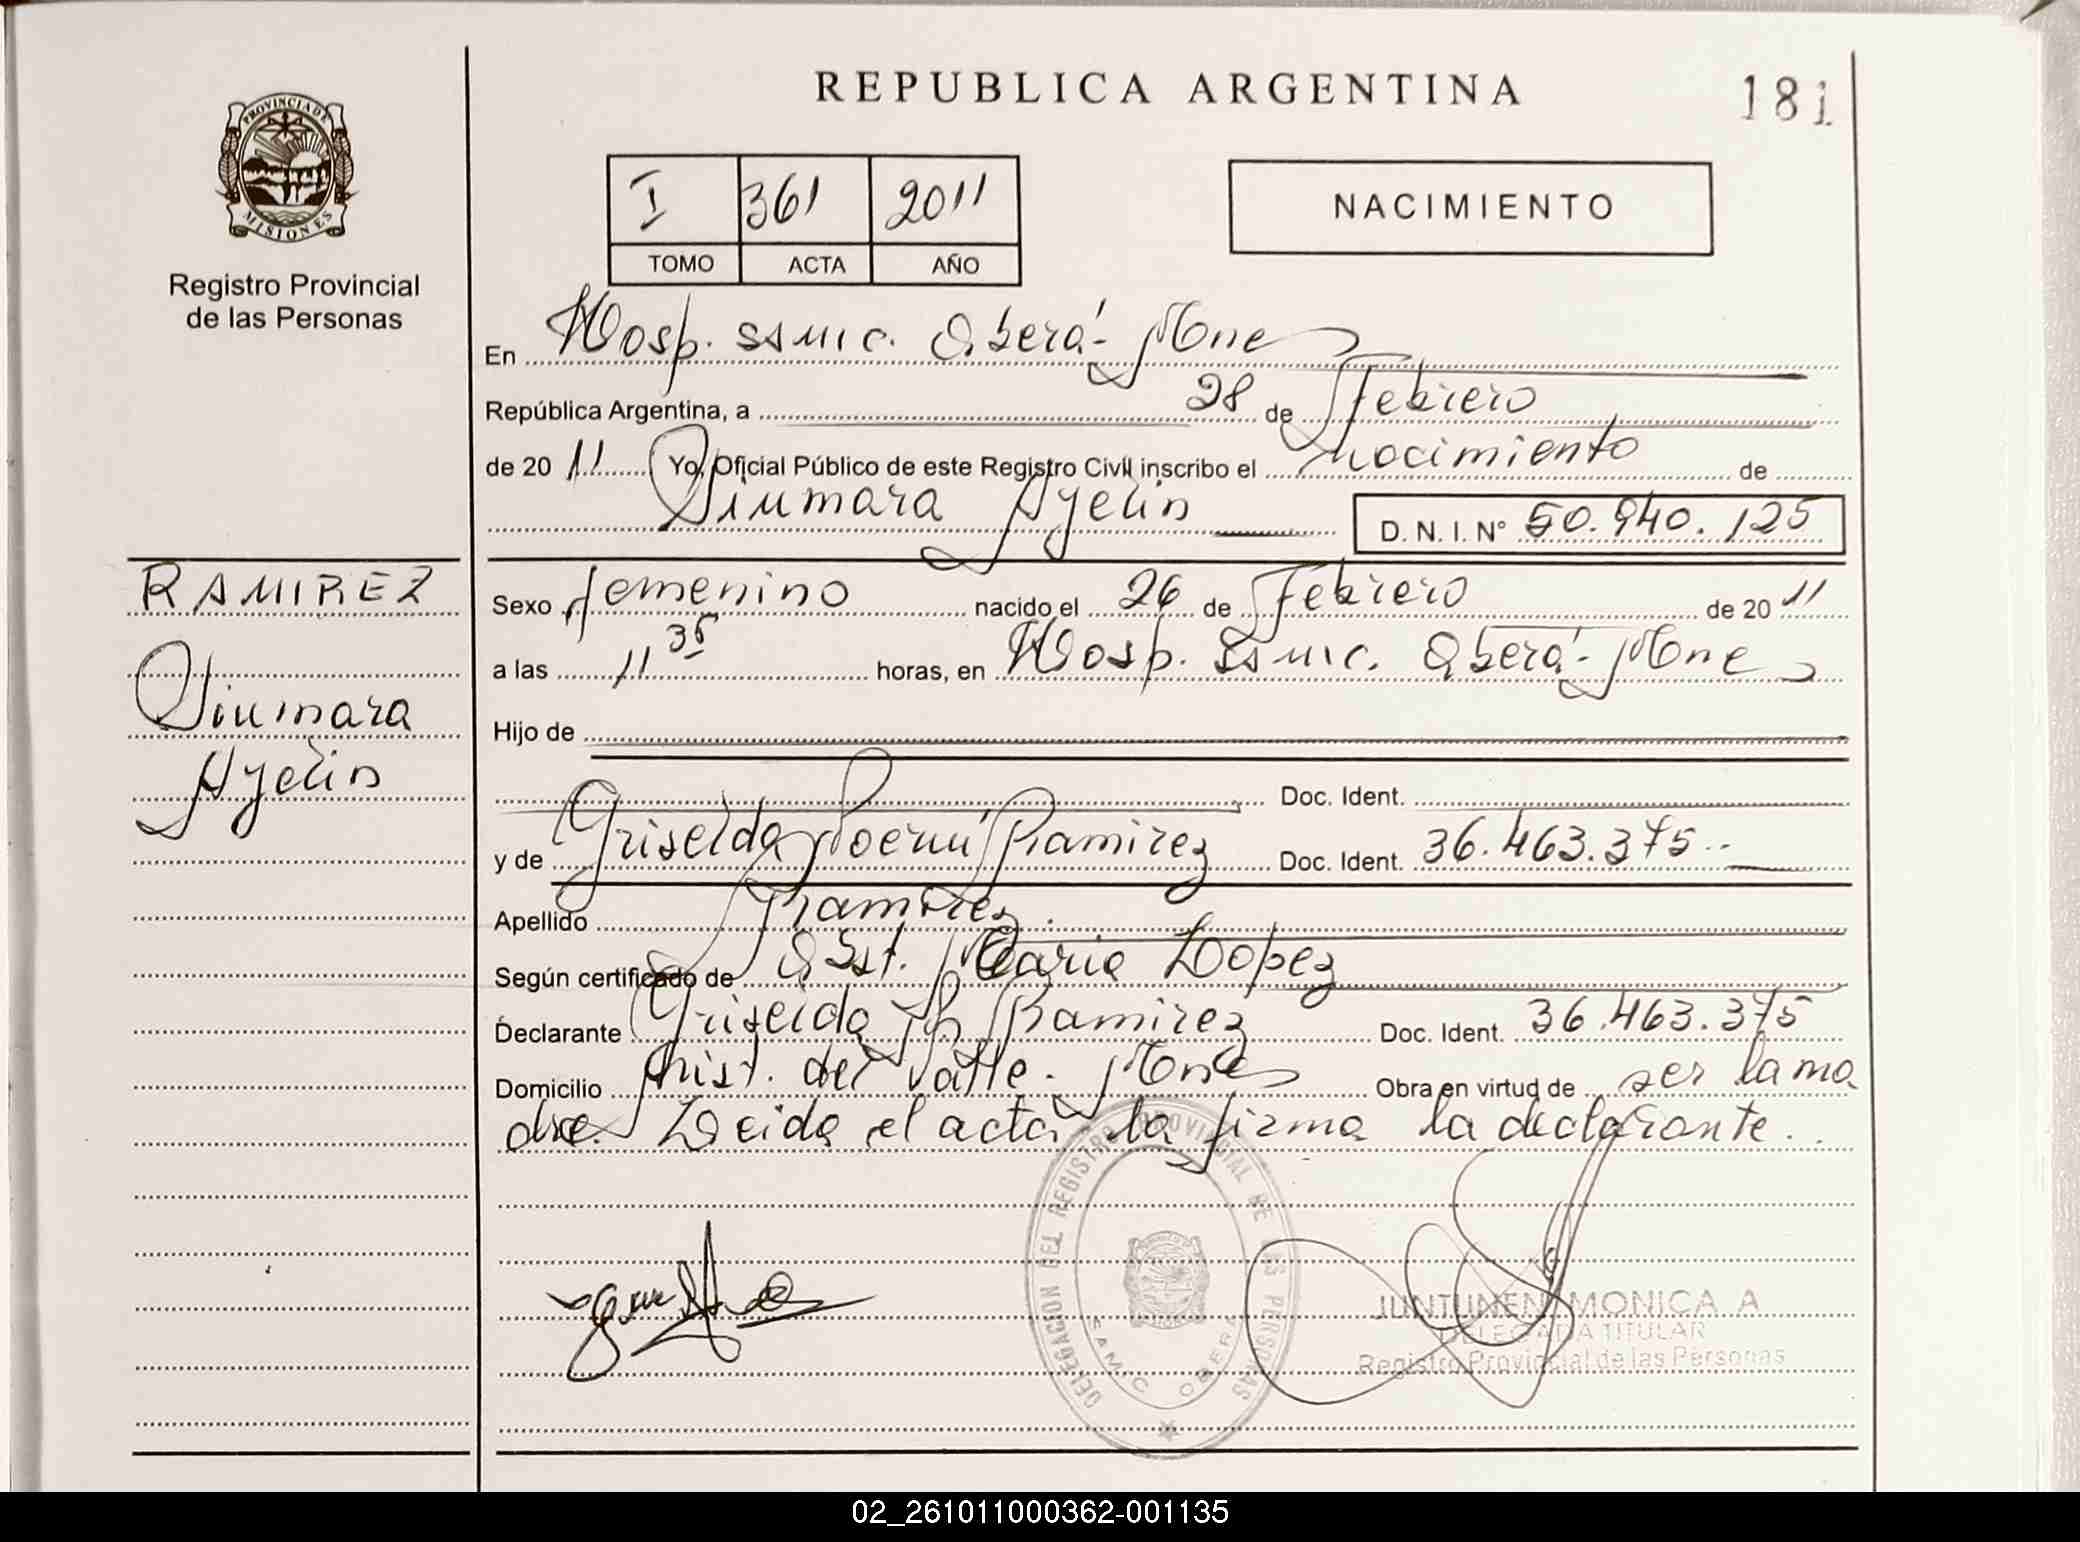 REPUBLICA ARGENTINA
181
PROVINCIA DE
MISIONES
Registro Provincial
de las Personas
I 361 2011
TOMO ACTA AÑO
NACIMIENTO
En Hosp. SAMIC. Oberá - Mnes
República Argentina, a 28 de Febrero
de 20 11 Yo, Oficial Público de este Registro Civil inscribo el nacimiento de
Siumara Ayelin D. N. I. N° 50.940.125
RAMIREZ
Siumara
Ayelin
Sexo femenino nacido el 26 de Febrero de 20 11
a las 11 35 horas, en Hosp. Samic. Oberá - Mnes
Hijo de
Doc. Ident.
y de Griselda Ramirez Doc. Ident. 36.463.375
Apellido Ramirez
Según certificado de Obst. Maria Lopez
Declarante Griselda Ramirez Doc. Ident. 36.463.375
Domicilio Arist. del Valle - Mnes Obra en virtud de ser la ma
dre. Leida el acta la firma la declarante.
DELEGACION DEL REGISTRO PROVINCIAL DE LAS PERSONAS
SAMIC OBERA
JUNTUNEN MONICA A
DELEGADA TITULAR
Registro Provincial de las Personas
02_261011000362-001135